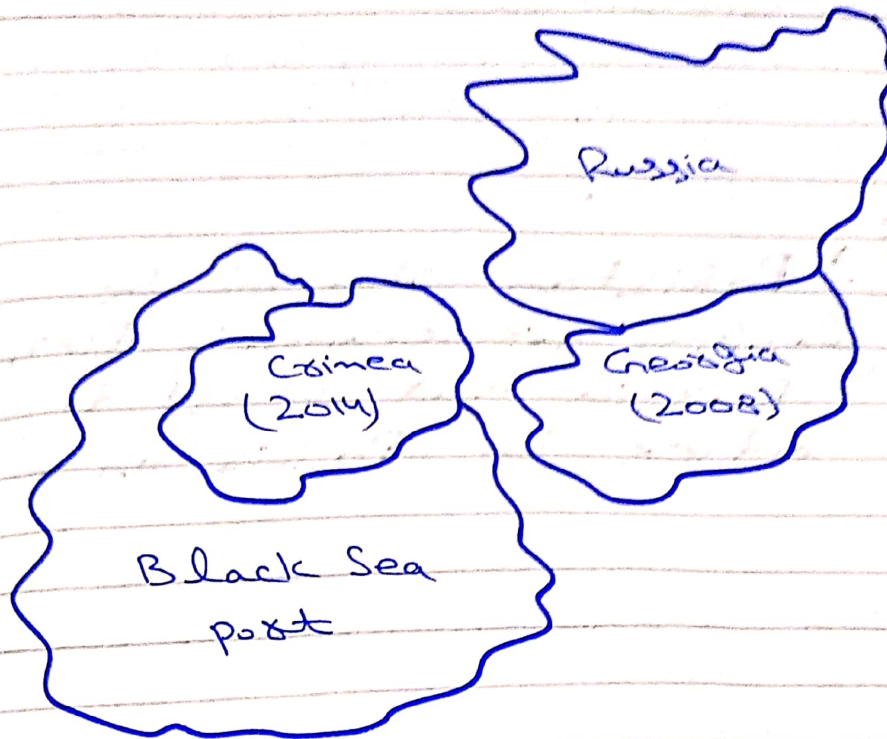 Russia
Crimea
(2014)
Georgia
(2008)
Black Sea
port